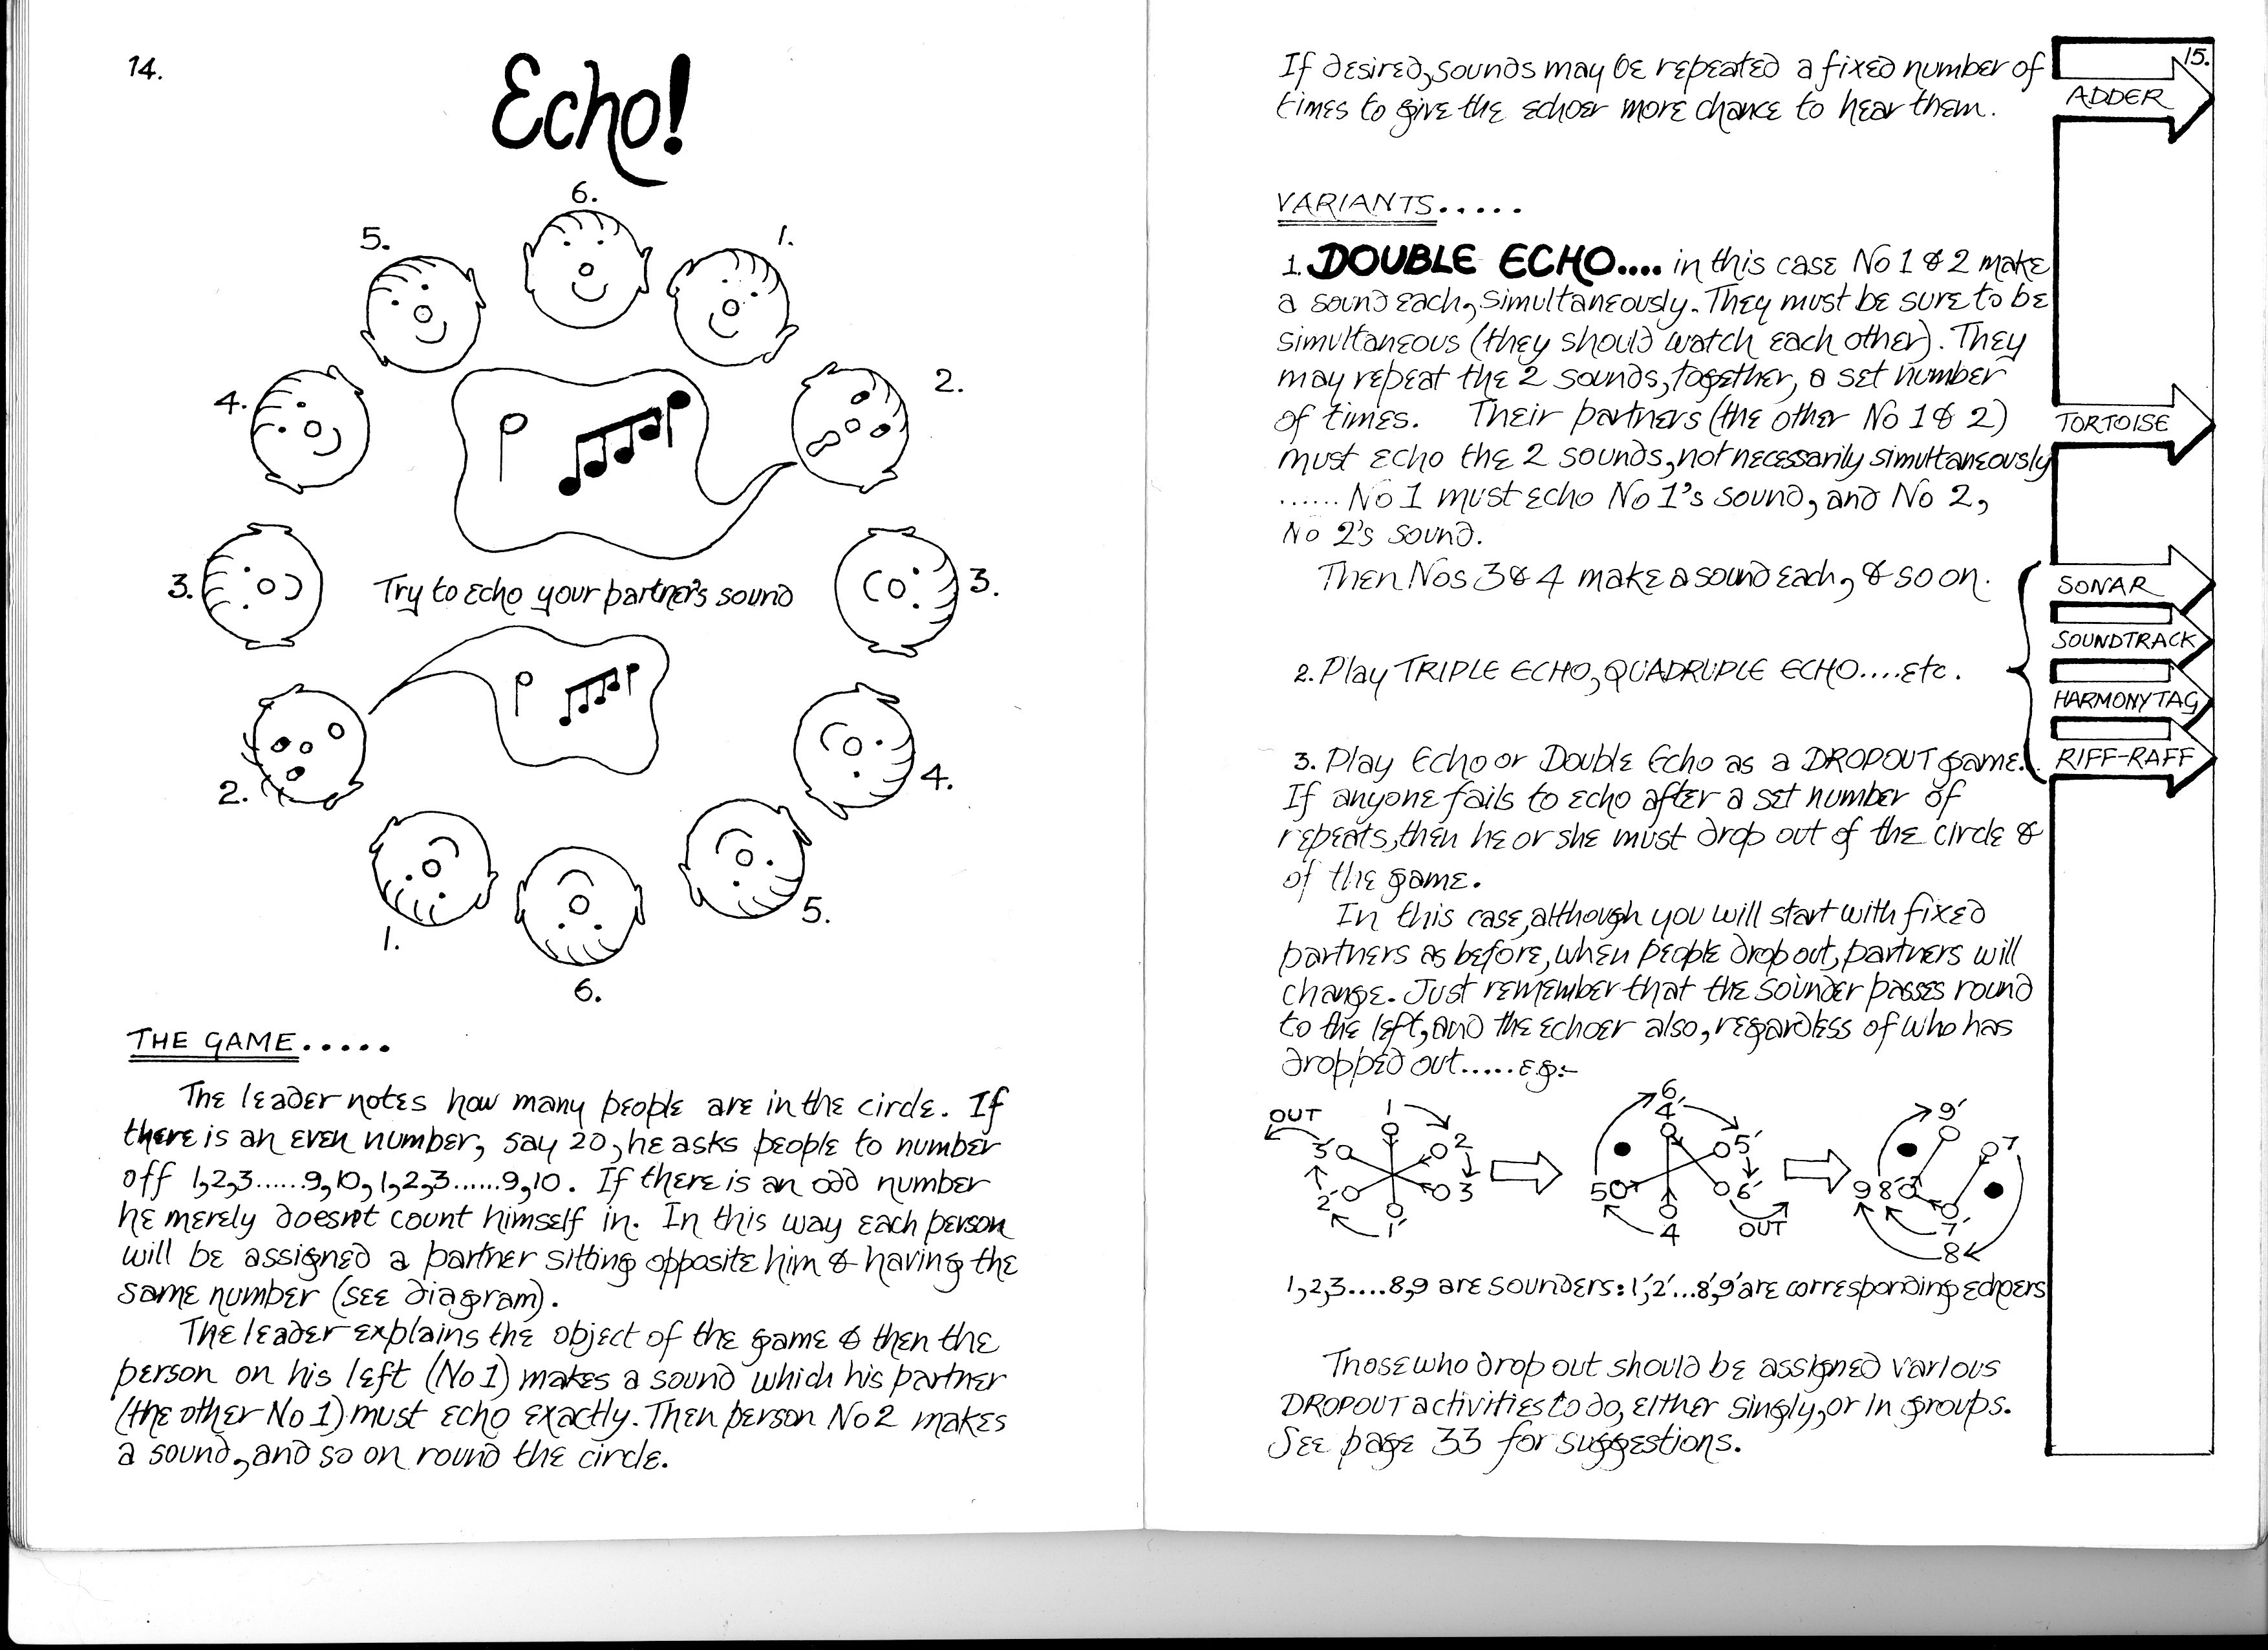 14.
Echo!
6.
5.
1.
4.
2.
3.
Try to echo your partner's sound
3.
2.
4.
1.
5.
6.
THE GAME.....
The leader notes how many people are in the circle. If
there is an even number, say 20, he asks people to number
off 1,2,3......9,10,1,2,3......9,10. If there is an odd number
he merely doesn't count himself in. In this way each person
will be assigned a partner sitting opposite him & having the
same number (see diagram).
The leader explains the object of the game & then the
person on his left (No 1) makes a sound which his partner
(the other No 1) must echo exactly. Then person No 2 makes
a sound, and so on round the circle.
15.
If desired, sounds may be repeated a fixed number of
times to give the echoer more chance to hear them.
VARIANTS.....
1. DOUBLE ECHO.... in this case No 1 & 2 make
a sound each, simultaneously. They must be sure to be
simultaneous (they should watch each other). They
may repeat the 2 sounds, together, a set number
of times. Their partners (the other No 1 & 2)
must echo the 2 sounds, not necessarily simultaneously
...... No 1 must echo No 1's sound, and No 2,
No 2's sound.
Then Nos 3 & 4 make a sound each, & so on.
2. Play TRIPLE ECHO, QUADRUPLE ECHO....etc.
3. Play Echo or Double Echo as a DROPOUT game.
If anyone fails to echo after a set number of
repeats, then he or she must drop out of the circle &
of the game.
In this case, although you will start with fixed
partners as before, when people drop out, partners will
change. Just remember that the sounder passes round
to the left, and the echoer also, regardless of who has
dropped out......e.g:-
OUT
1
2
3
1'
2'
3'
6'
4'
5'
6'
4
5
OUT
9'
7
9 8'
7'
8
1,2,3....8,9 are sounders: 1',2'...8',9' are corresponding echoers
Those who drop out should be assigned various
DROPOUT activities to do, either singly, or in groups.
See page 33 for suggestions.
ADDER
TORTOISE
SONAR
SOUNDTRACK
HARMONY TAG
RIFF-RAFF